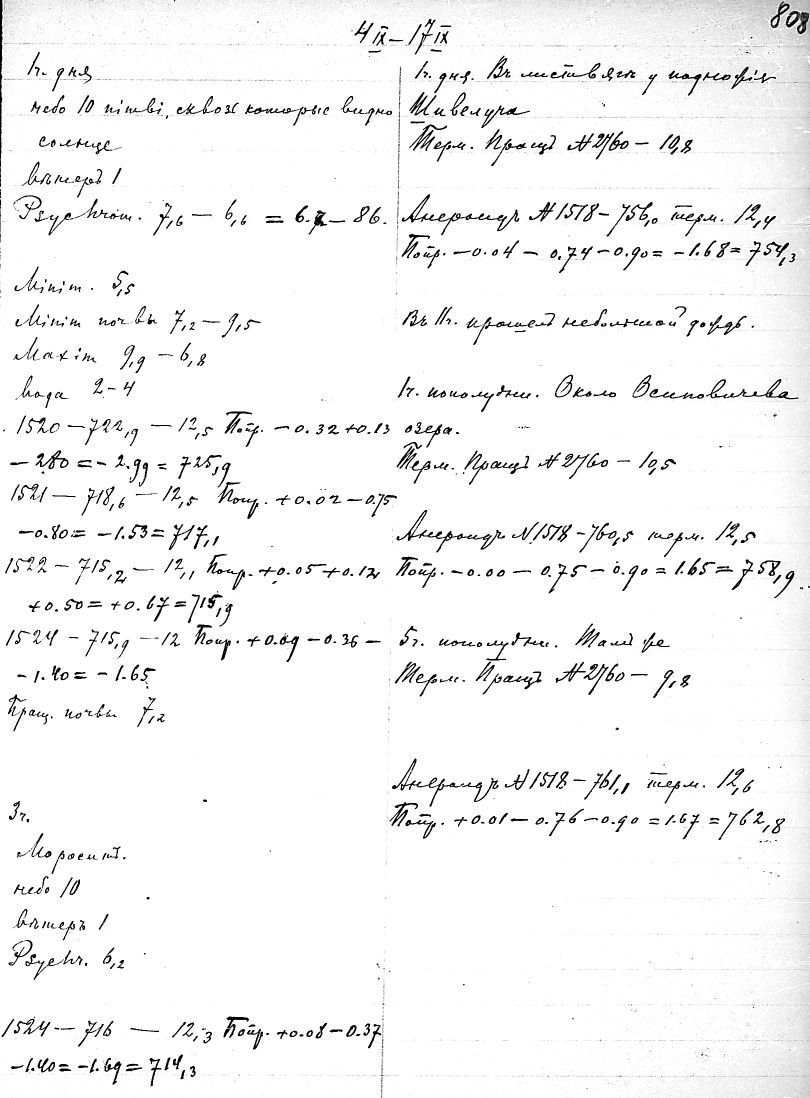 808
4 IX – 17 IX
1ч. дня
небо 10 nimbi, сквозь которые видно
солнце
вѣтеръ 1
Psychrom. 7,6 – 6,6 = 6.7 – 86.
Minim. 5,5
Minim почвы 7,2 – 9,5
Maxim 9,9 – 6,8
вода 2 – 4
1520 – 722,9 – 12,5 Попр. – 0.32 + 0.13
– 2.80 = – 2.99 = 725,9
1521 – 718,6 – 12,5 Попр. + 0.02 – 0.75
– 0.80 = – 1.53 = 717,1
1522 – 715,2 – 12,1 Попр. + 0.05 + 0.12
+ 0.50 = + 0.67 = 715,9
1524 – 715,9 – 12 Попр. + 0.09 – 0.36 –
– 1.40 = – 1.65
Пращ. почвы 7,2
3ч.
Мороситъ.
небо 10
вѣтеръ 1
Psychr. 6,2
1524 – 716 – 12,3 Попр. + 0.08 – 0.37
– 1.40 = – 1.69 = 714,3
1ч. дня. Въ листвягѣ у подножія
Шивелуча
Терм. Пращъ № 2760 – 10,8
Анероидъ № 1518 – 756,0 терм. 12,4
Попр. – 0.04 – 0.74 – 0.90 = – 1.68 = 754,3
Въ 11ч. прошелъ небольшой дождь.
1ч. пополудни. Около Осиповичева
озера.
Терм. Пращъ № 2760 – 10,5
Анероидъ № 1518 – 760,5 терм. 12,5
Попр. – 0.00 – 0.75 – 0.90 = 1.65 = 758,9
5ч. пополудни. Тамъ же
Терм. Пращъ № 2760 – 9,8
Анероидъ № 1518 – 761,1 терм. 12,6
Попр. + 0.01 – 0.76 – 0.90 = 1.67 = 762,8